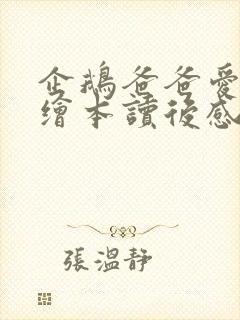 企鵝爸爸愛
繪本讀後感
張溫靜